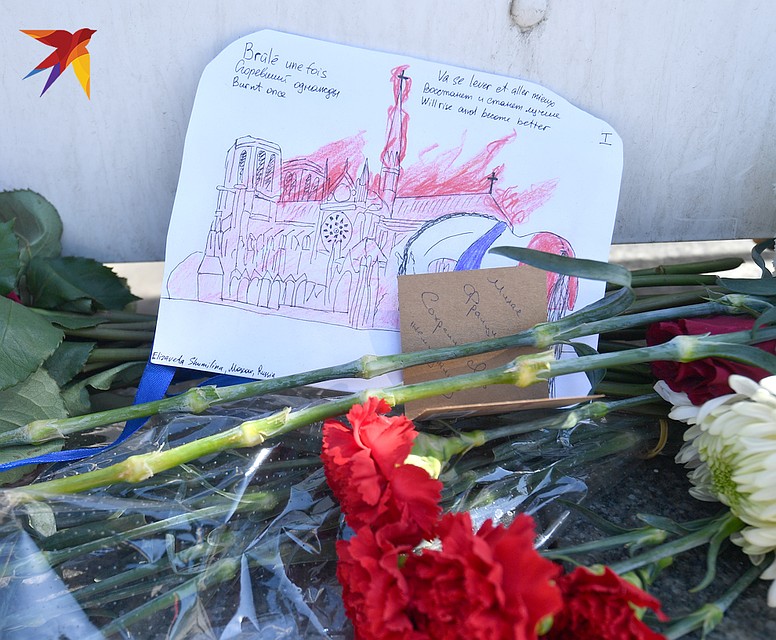 Brûlé une fois
Сгоревший однажды
Burnt once
Va se lever et aller mieux
Восстанет и станет лучше
Will rise and become better
I
Elizaveta Shumilina, Moscow, Russia
Милая
Франция